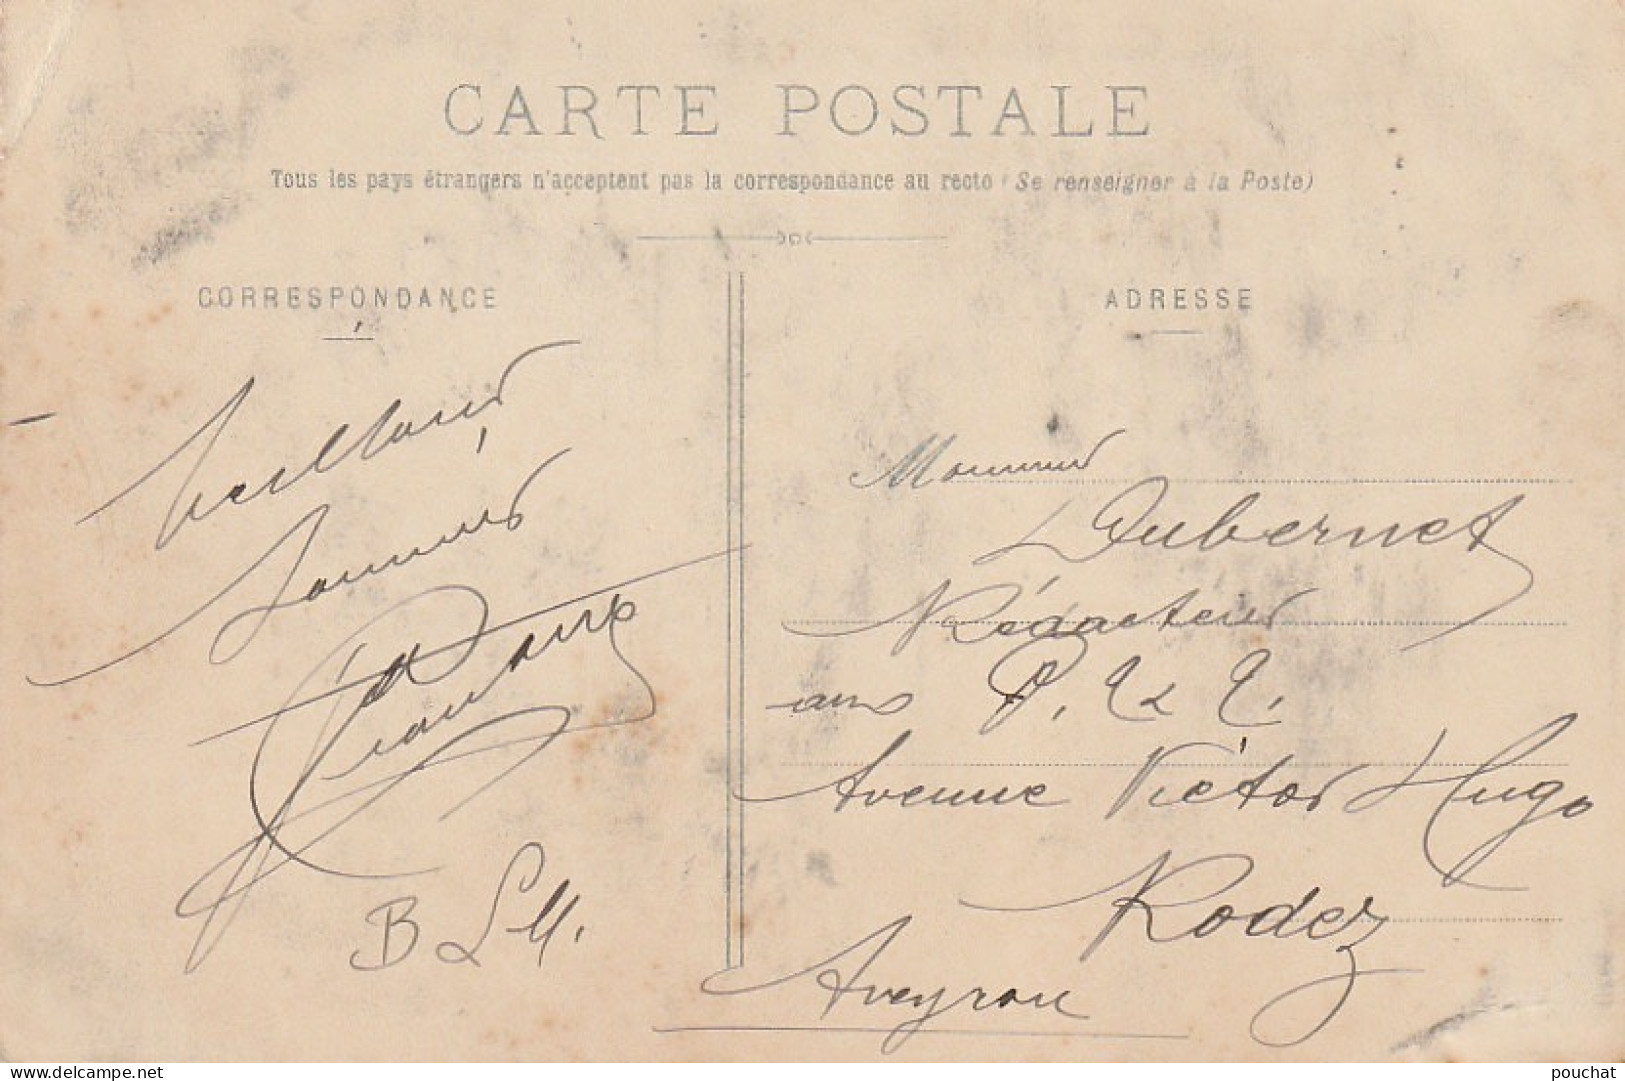 CARTE POSTALE
Tous les pays étrangers n'acceptent pas la correspondance au recto (Se renseigner à la Poste)
CORRESPONDANCE
ADRESSE
Meilleurs
Monsieur
Dubernet
Rédacteur
aux P. T & T.
Avenue Victor Hugo
Rodez
Aveyron
www.delcampe.net
pouchat